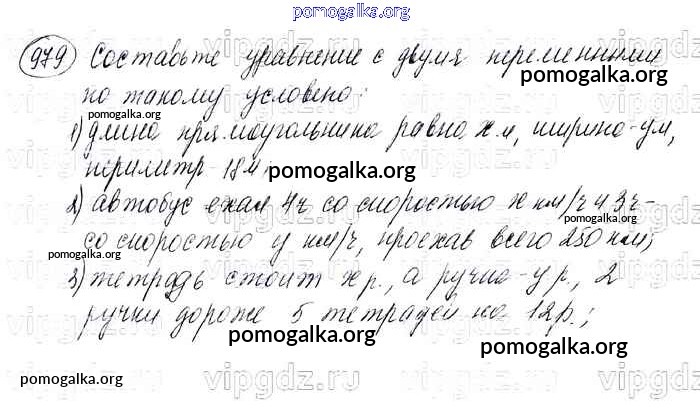 pomogalka.org
979 Составьте уравнение с двумя переменными
pomogalka.org
по такому условию:
pomogalka.org
1) длина прямоугольника равна x м, ширина - y м,
периметр - 18 м,
pomogalka.org
2) автобус ехал 4 ч со скоростью x км/ч и 3 ч -
pomogalka.org
со скоростью y км/ч, проехав всего 250 км;
pomogalka.org
3) тетрадь стоит x р., а ручка - y р., 2
ручки дороже 5 тетрадей на 12 р.;
pomogalka.org
pomogalka.org
pomogalka.org
vipgdz.ru